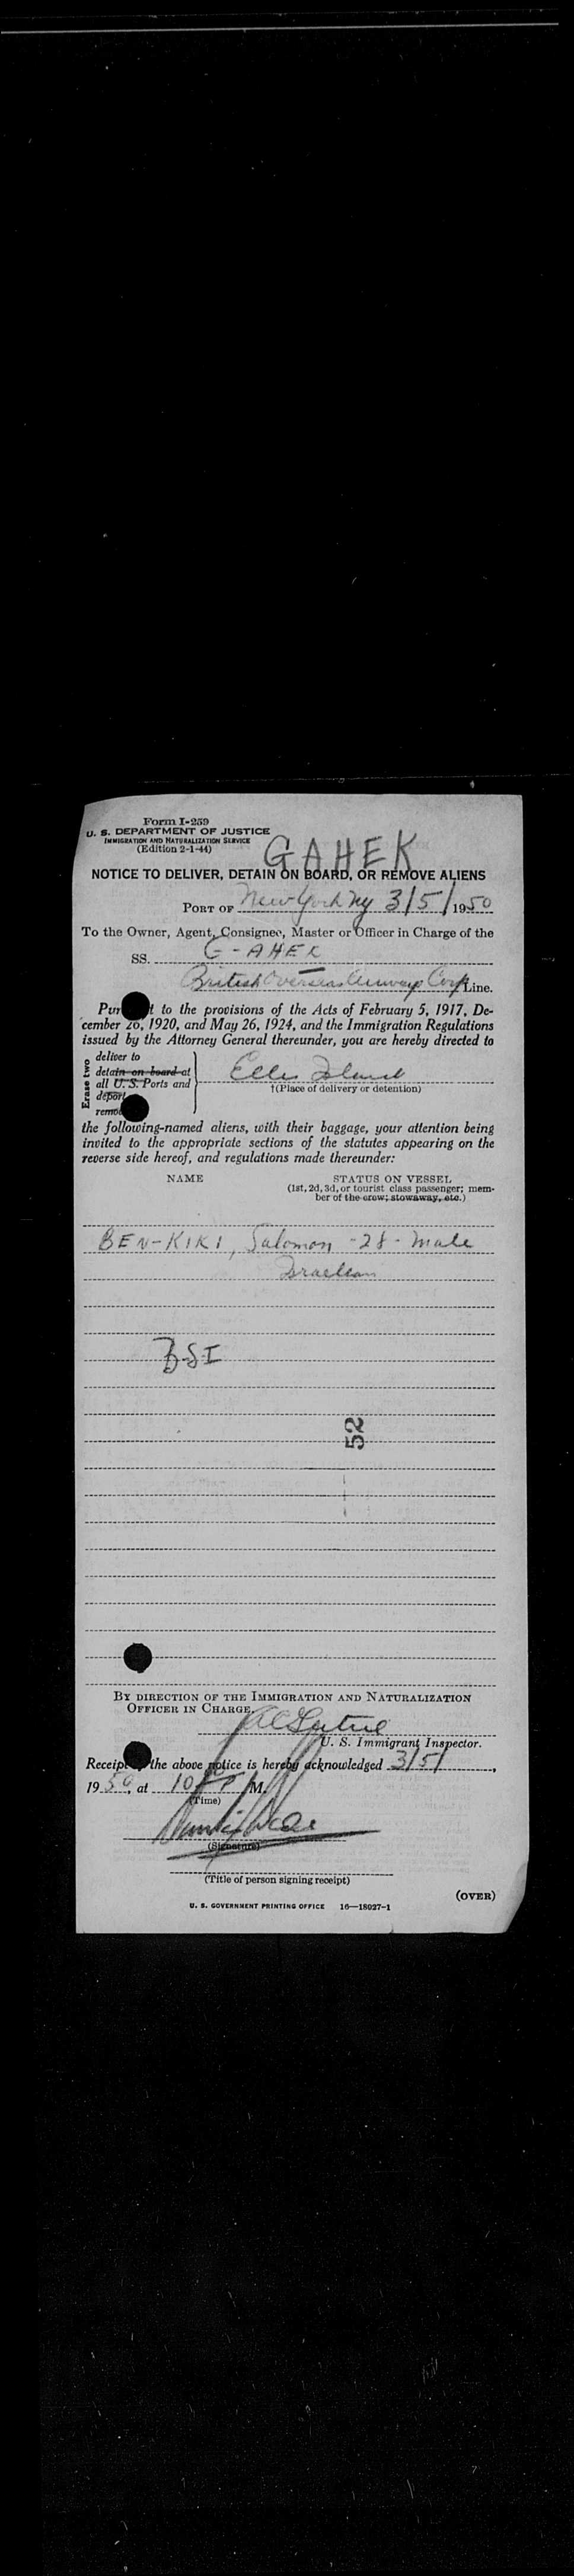 Form I-259
U. S. DEPARTMENT OF JUSTICE
IMMIGRATION AND NATURALIZATION SERVICE
(Edition 2-1-44)
GAHEK
NOTICE TO DELIVER, DETAIN ON BOARD, OR REMOVE ALIENS
PORT OF New York NY 3/5/1950
To the Owner, Agent, Consignee, Master or Officer in Charge of the
SS. G-AHEK
British Overseas Airways Corp Line.
to the provisions of the Acts of February 5, 1917, De-
cember 26, 1920, and May 26, 1924, and the Immigration Regulations
issued by the Attorney General thereunder, you are hereby directed to
Erase two
deliver to
detain on board at
all U. S. Ports and
deport
Ellis Island
†(Place of delivery or detention)
the following-named aliens, with their baggage, your attention being
invited to the appropriate sections of the statutes appearing on the
reverse side hereof, and regulations made thereunder:
NAME STATUS ON VESSEL
(1st, 2d, 3d, or tourist class passenger; mem-
ber of the crew; stowaway, etc.)
BEN-KIKI, Salomon - 28 - male
Israelean
BSI
52
BY DIRECTION OF THE IMMIGRATION AND NATURALIZATION
OFFICER IN CHARGE.
U. S. Immigrant Inspector.
Receipt the above notice is hereby acknowledged 3/5/,
1950, at 10 P M.
(Time)
(Signature)
(Title of person signing receipt)
(OVER)
U. S. GOVERNMENT PRINTING OFFICE 16—18027-1